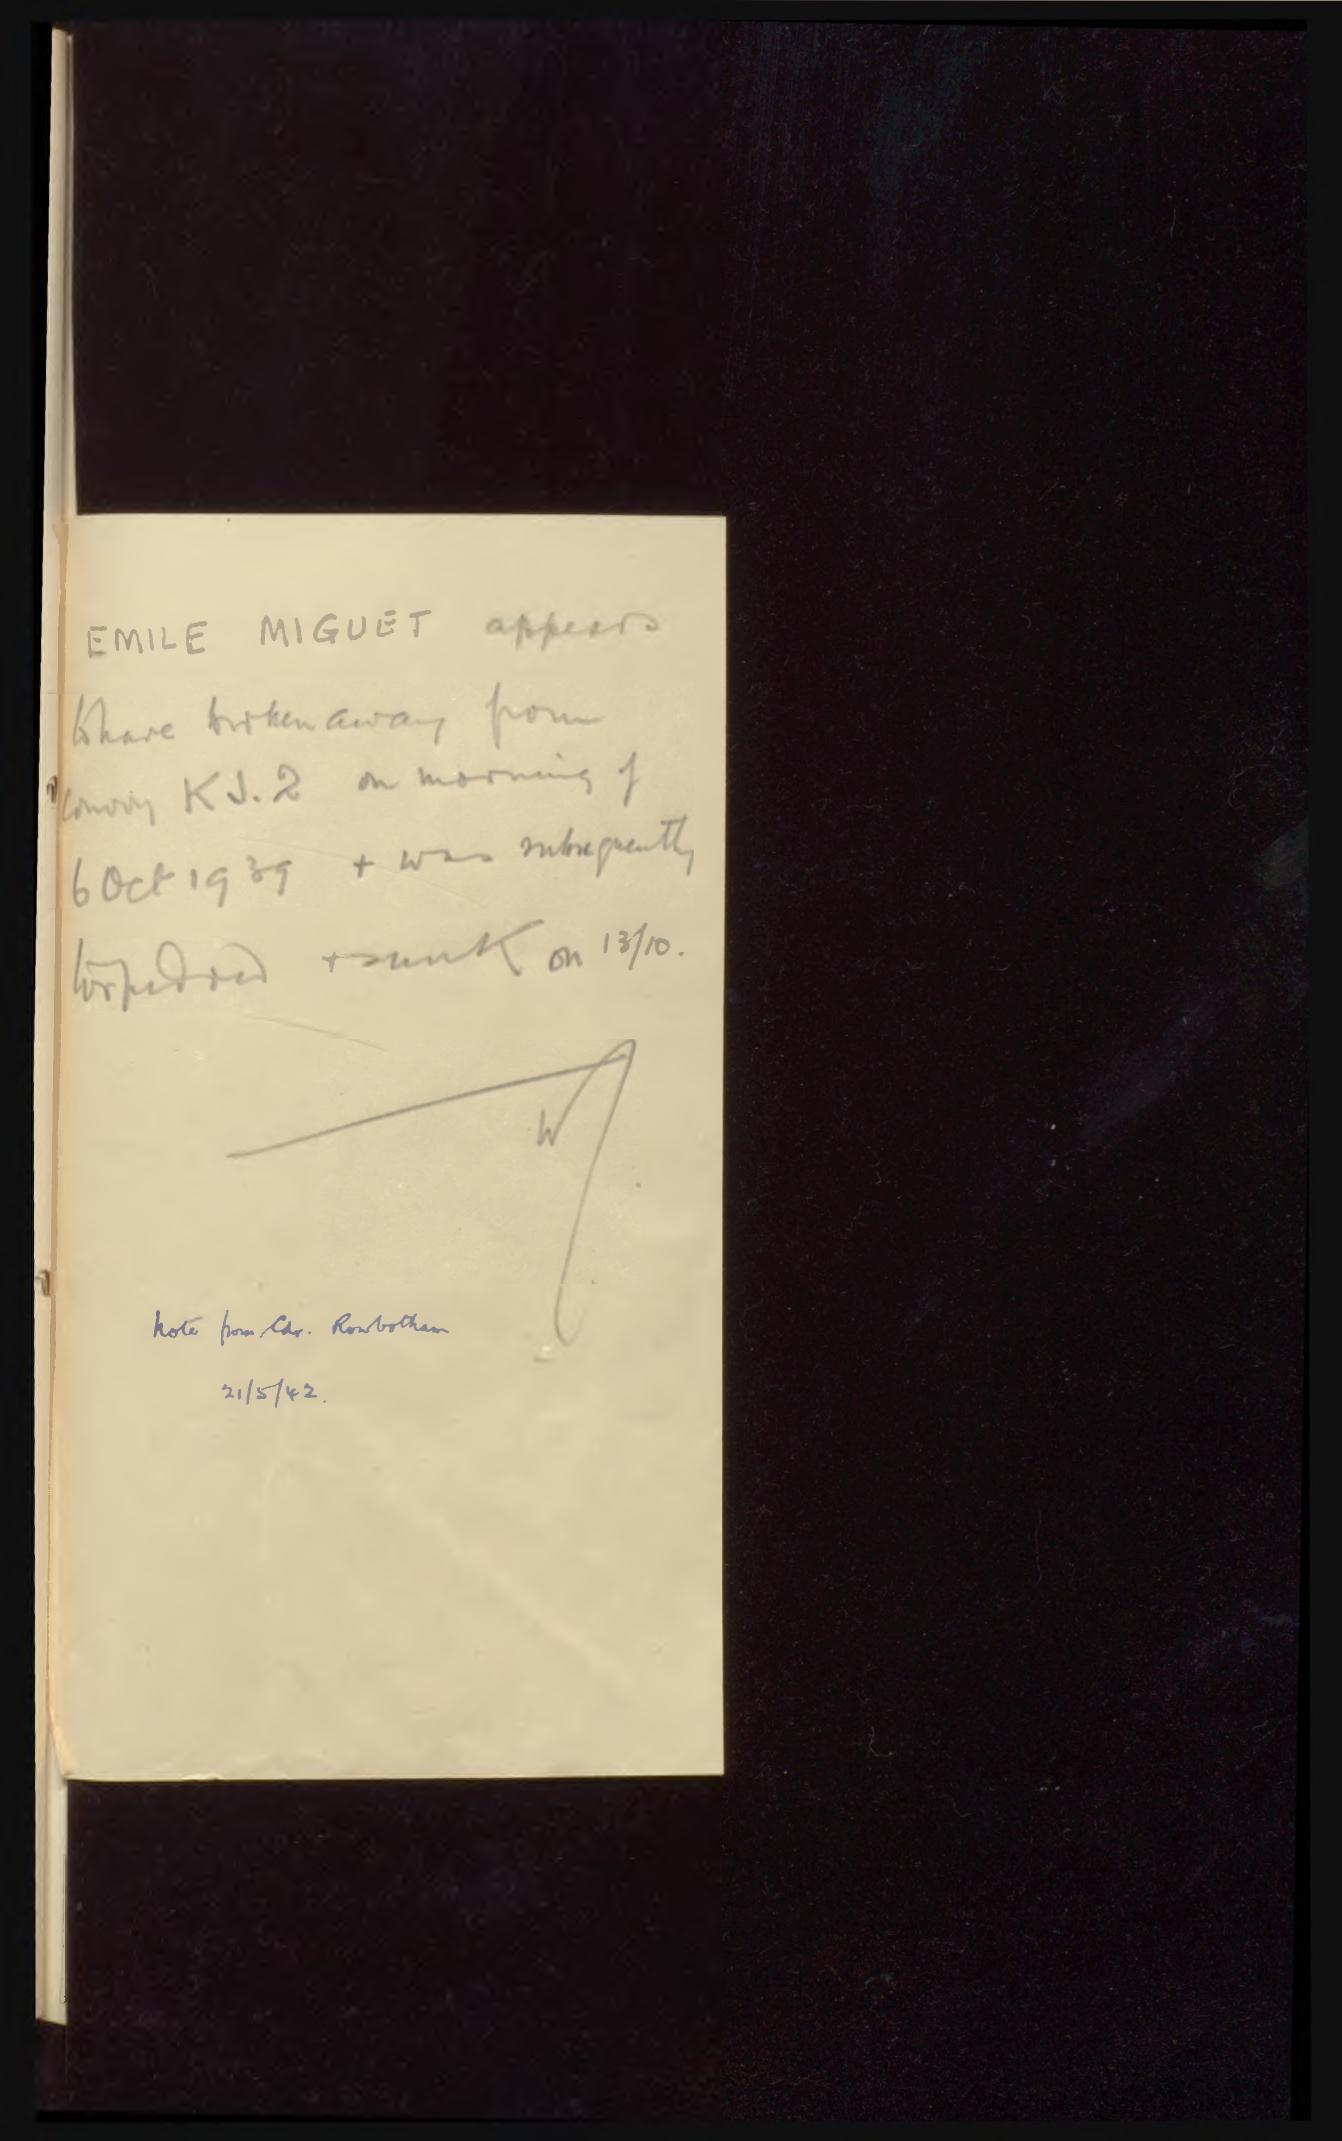 EMILE MIGUET appears
to have broken away from
convoy KJ.2 on morning of
6 Oct 1939 + was subsequently
torpedoed + sunk on 13/10.
W
Note from Cdr. Rowbotham
21/5/42.